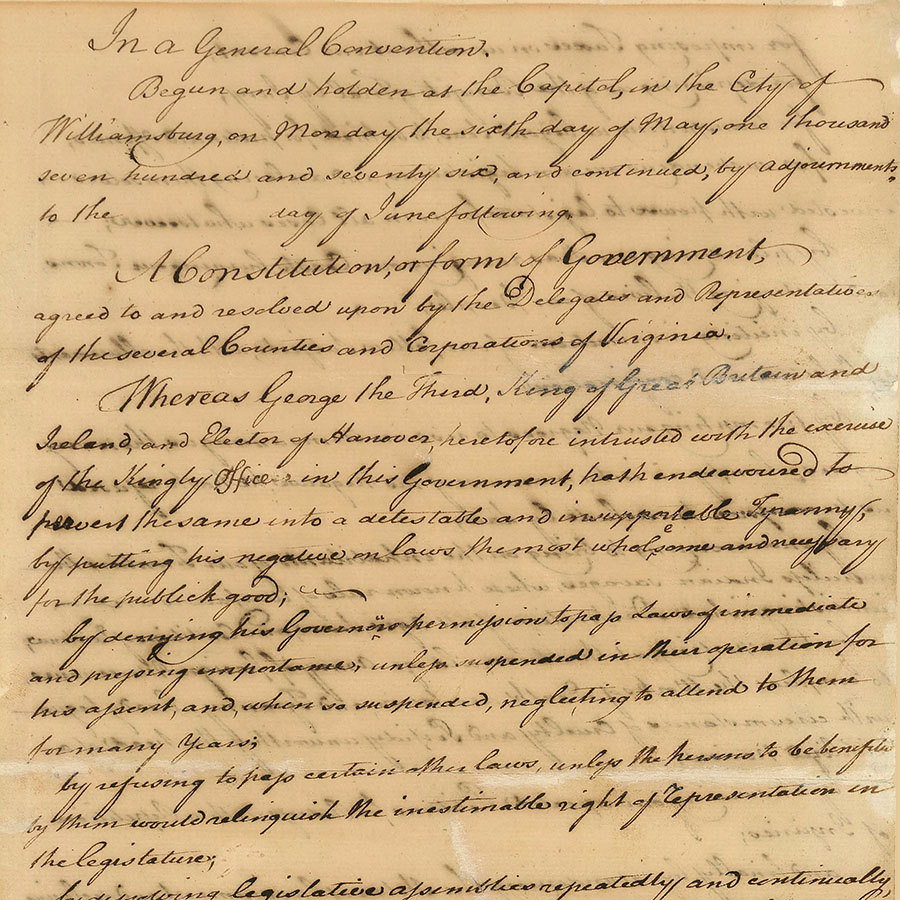 In a General Convention.
Begun and holden at the Capitol, in the City of
Williamsburg, on Monday the sixth day of May, one thousand
seven hundred and seventy six, and continued, by adjournments
to the day of June following.
A Constitution, or form of Government,
agreed to and resolved upon by the Delegates and Representatives
of the several Counties and Corporations of Virginia.
Whereas George the Third, King of Great Britain and
Ireland, and Elector of Hanover, heretofore intrusted with the exercise
of the Kingly Office in this Government, hath endeavoured to
pervert the same into a detestable and insupportable Tyranny;
by putting his negative on laws the most wholesome and necessary
for the publick good;
by denying his Governors permission to pass Laws of immediate
and pressing importance, unless suspended in their operation for
his assent, and, when so suspended, neglecting to attend to them
for many Years;
by refusing to pass certain other laws, unless the persons to be benefited
by them would relinquish the inestimable right of representation in
the legislature;
by dissolving legislative assemblies repeatedly and continually,